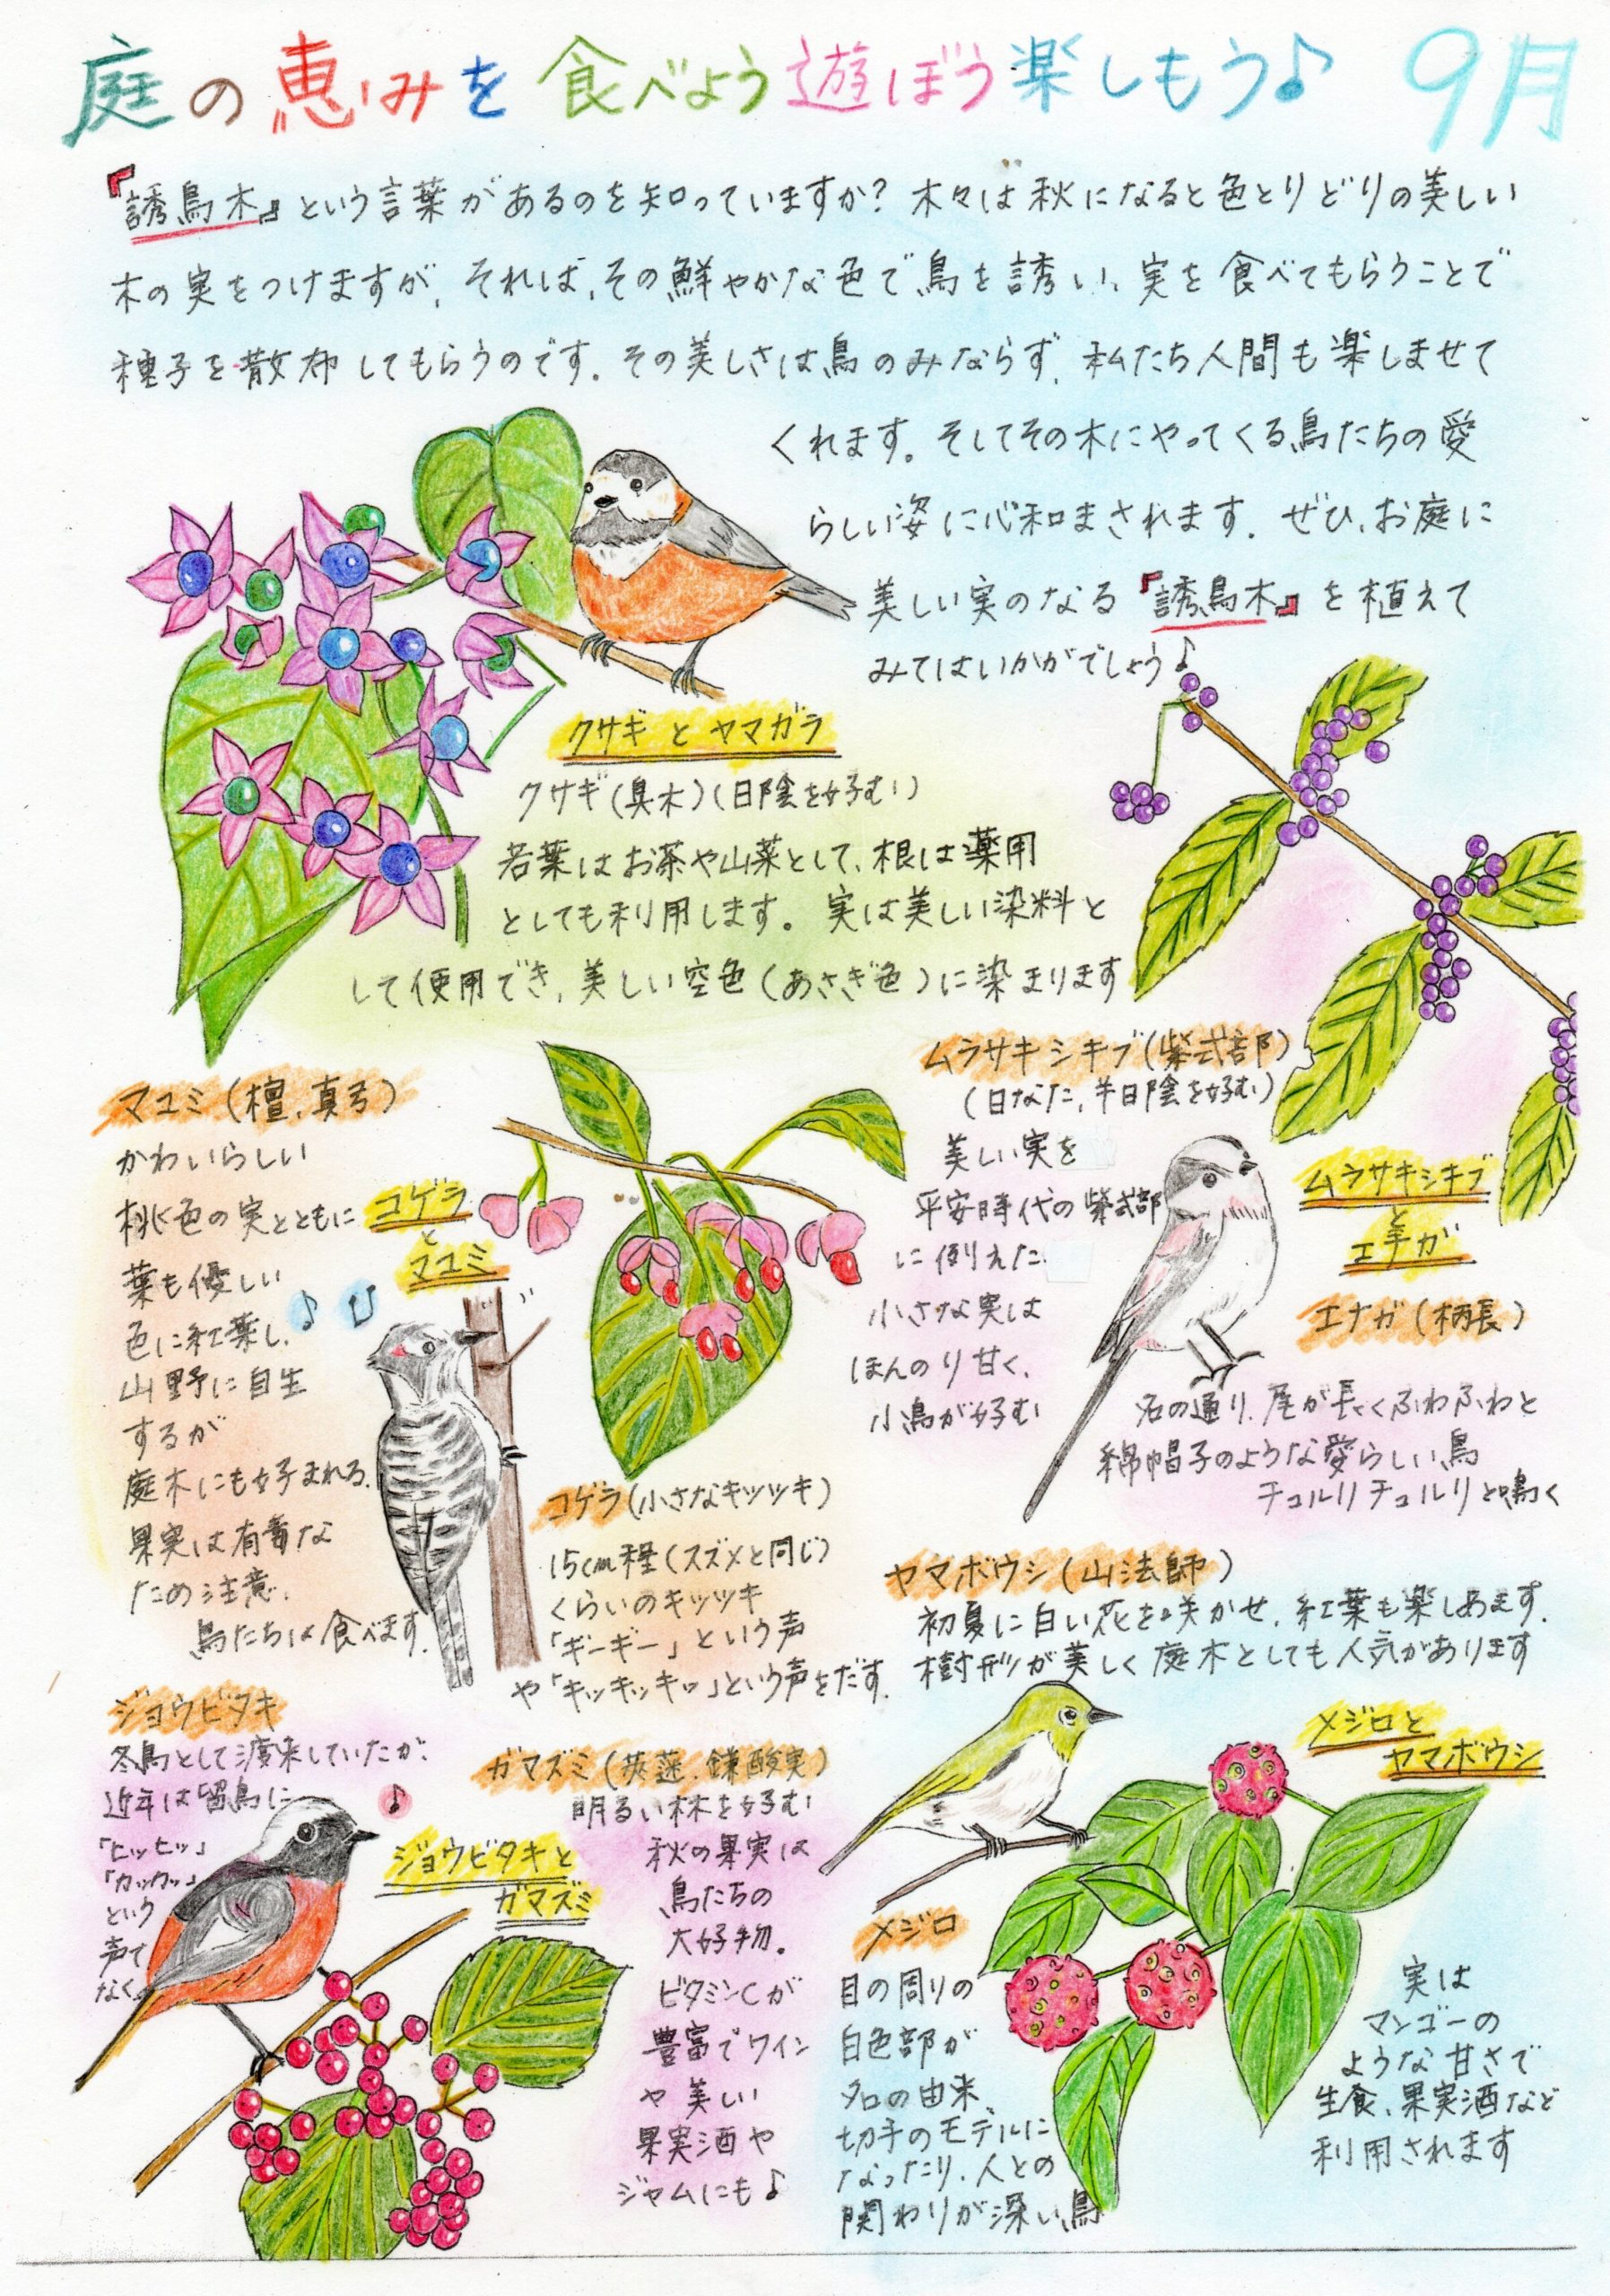 庭の恵みを食べよう遊ぼう楽しもう♪ 9月
『誘鳥木』という言葉があるのを知っていますか？木々は秋になると色とりどりの美しい
木の実をつけますが、それは、その鮮やかな色で鳥を誘い、実を食べてもらうことで
種子を散布してもらうのです。その美しさは鳥のみならず、私たち人間も楽しませて
くれます。そしてその木にやってくる鳥たちの愛
らしい姿に心和まされます。ぜひ、お庭に
美しい実のなる『誘鳥木』を植えて
みてはいかがでしょう♪
クサギとヤマガラ
クサギ(臭木)(日陰を好む)
若葉はお茶や山菜として、根は薬用
としても利用します。実は美しい染料と
して使用でき、美しい空色(あさぎ色)に染まります
ムラサキシキブ(紫式部)
(日なた、半日陰を好む)
美しい実を
平安時代の紫式部
に例えた
小さな実は
ほんのり甘く、
小鳥が好む
ムラサキシキブ
と
エナガ
エナガ(柄長)
名の通り、尾が長くふわふわと
綿帽子のような愛らしい鳥
チュルリチュルリと鳴く
マユミ(檀、真弓)
かわいらしい
桃色の実とともに
葉も優しい
色に紅葉し、
山野に自生
するが
庭木にも好まれる。
果実は有毒な
ため注意。
鳥たちは食べます。
コゲラ
と
マユミ
♪
コゲラ(小さなキツツキ)
15cm程(スズメと同じ)
くらいのキツツキ
「ギーギー」という声
や「キッキッキッ」という声をだす。
ヤマボウシ(山法師)
初夏に白い花を咲かせ、紅葉も楽しめます。
樹形が美しく庭木としても人気があります
メジロと
ヤマボウシ
メジロ
目の周りの
白色部が
名の由来、
切手のモデルに
なったり、人との
関わりが深い鳥
実は
マンゴーの
ような甘さで
生食、果実酒など
利用されます
ジョウビタキ
冬鳥として渡来していたが、
近年は留鳥に
「ヒッヒッ」
「カッカッ」
という
声で
なく
♪
ジョウビタキと
ガマズミ
ガマズミ(莢蒾、鎌酸実)
明るい林を好む
秋の果実は
鳥たちの
大好物。
ビタミンCが
豊富でワイン
や美しい
果実酒や
ジャムにも♪